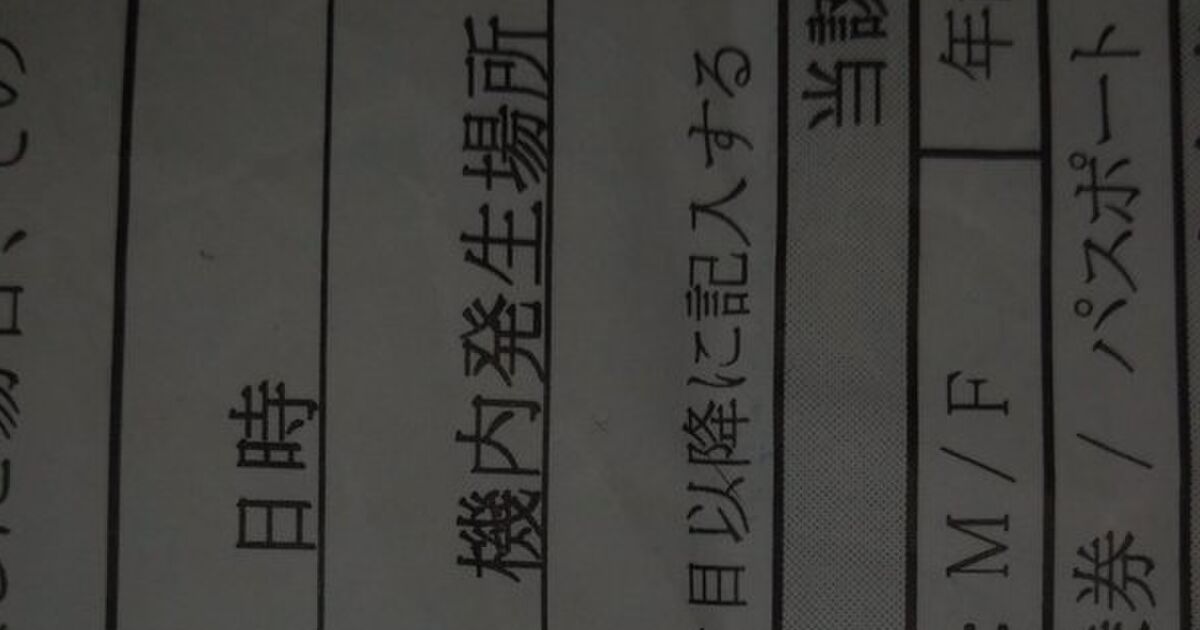 日時
機内発生場所
目以降に記入する
当該
M / F 年
券 / パスポート